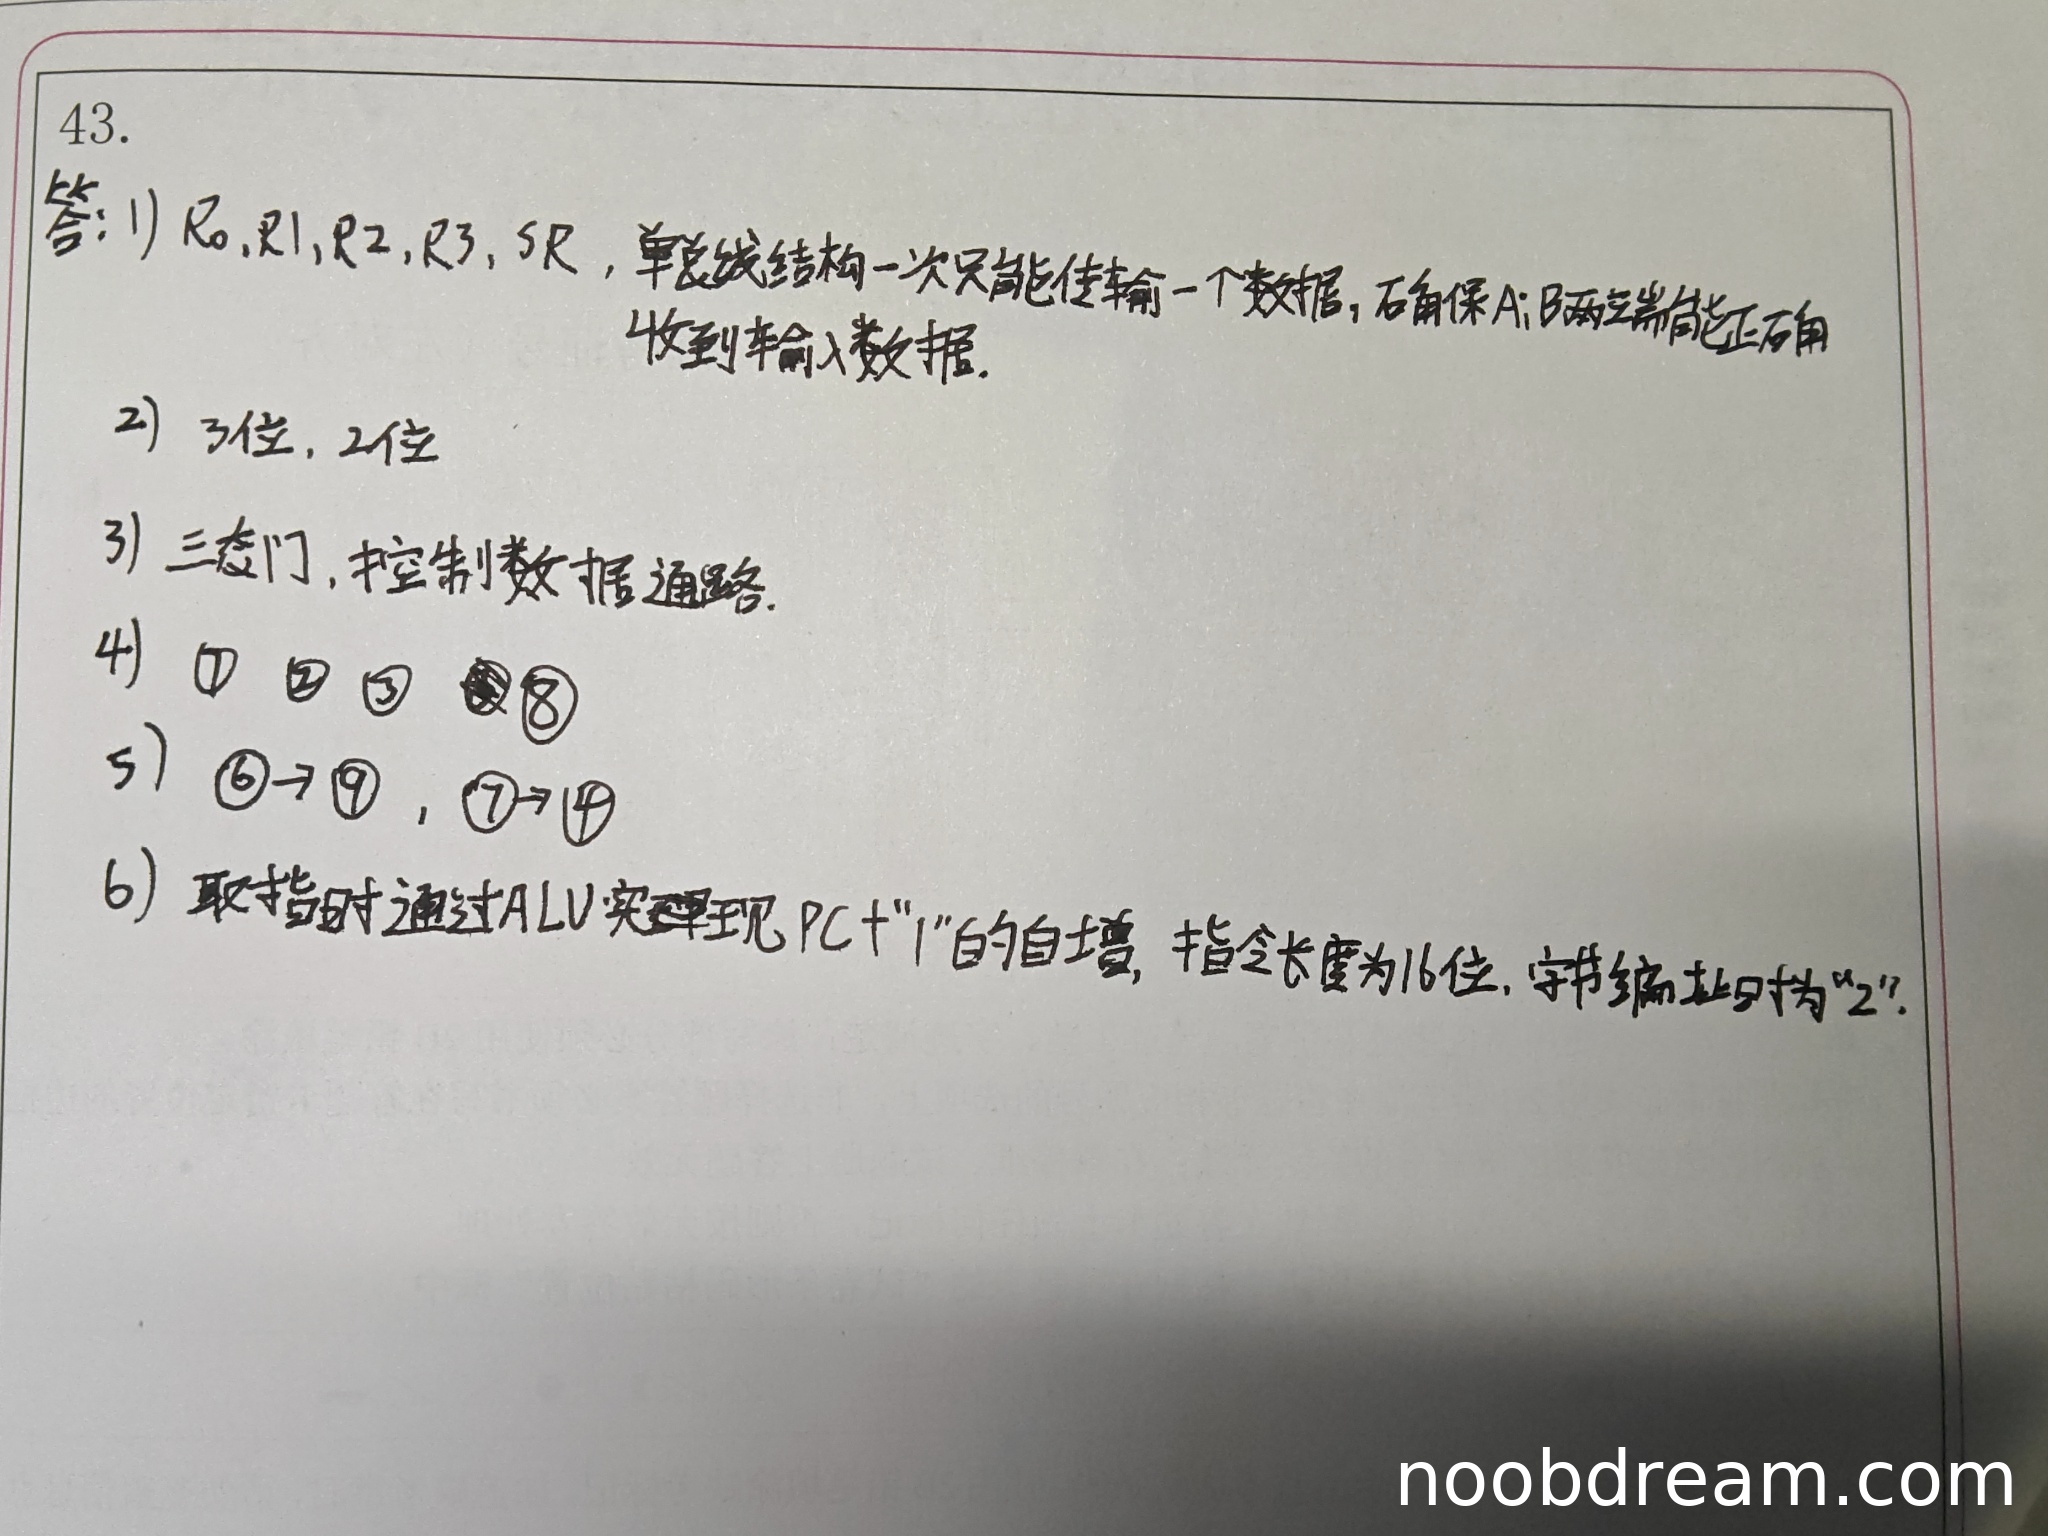 43.
答:1) R0, R1, R2, R3, SR, 单总线结构一次只能传输一个数据,确保A、B两立端能正确
收到输入数据.
2) 3位, 2位
3) 三态门, 控制数据通路.
4) ① ② ③ ⑧
5) ⑥→⑨, ⑦→④
6) 取指时通过ALU实现PC+"1"的自增, 指令长度为16位, 字节编址时为"2".
noobdream.com